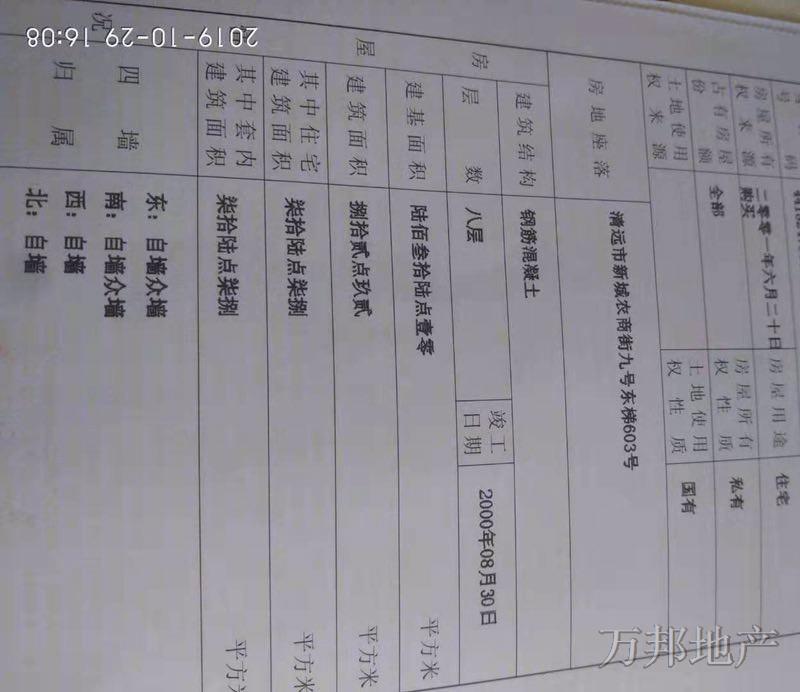 号 码
房屋所有权来源 二零零一年六月二十日购买 房屋用途 住宅
占有房屋份额 全部 房屋所有权性质 私有
土地使用权来源 土地使用权性质 国有
房地座落 清远市新城农商街九号东梯603号
建筑结构 钢筋混凝土
层数 八层 竣工日期 2000年08月30日
建基面积 陆佰叁拾陆点壹零 平方米
建筑面积 捌拾贰点玖贰 平方米
其中住宅建筑面积 柒拾陆点柒捌 平方米
其中套内建筑面积 柒拾陆点柒捌 平方米
房屋
况
四墙归属
东：自墙众墙
南：自墙众墙
西：自墙
北：自墙
2019-10-29 16:08
万邦地产